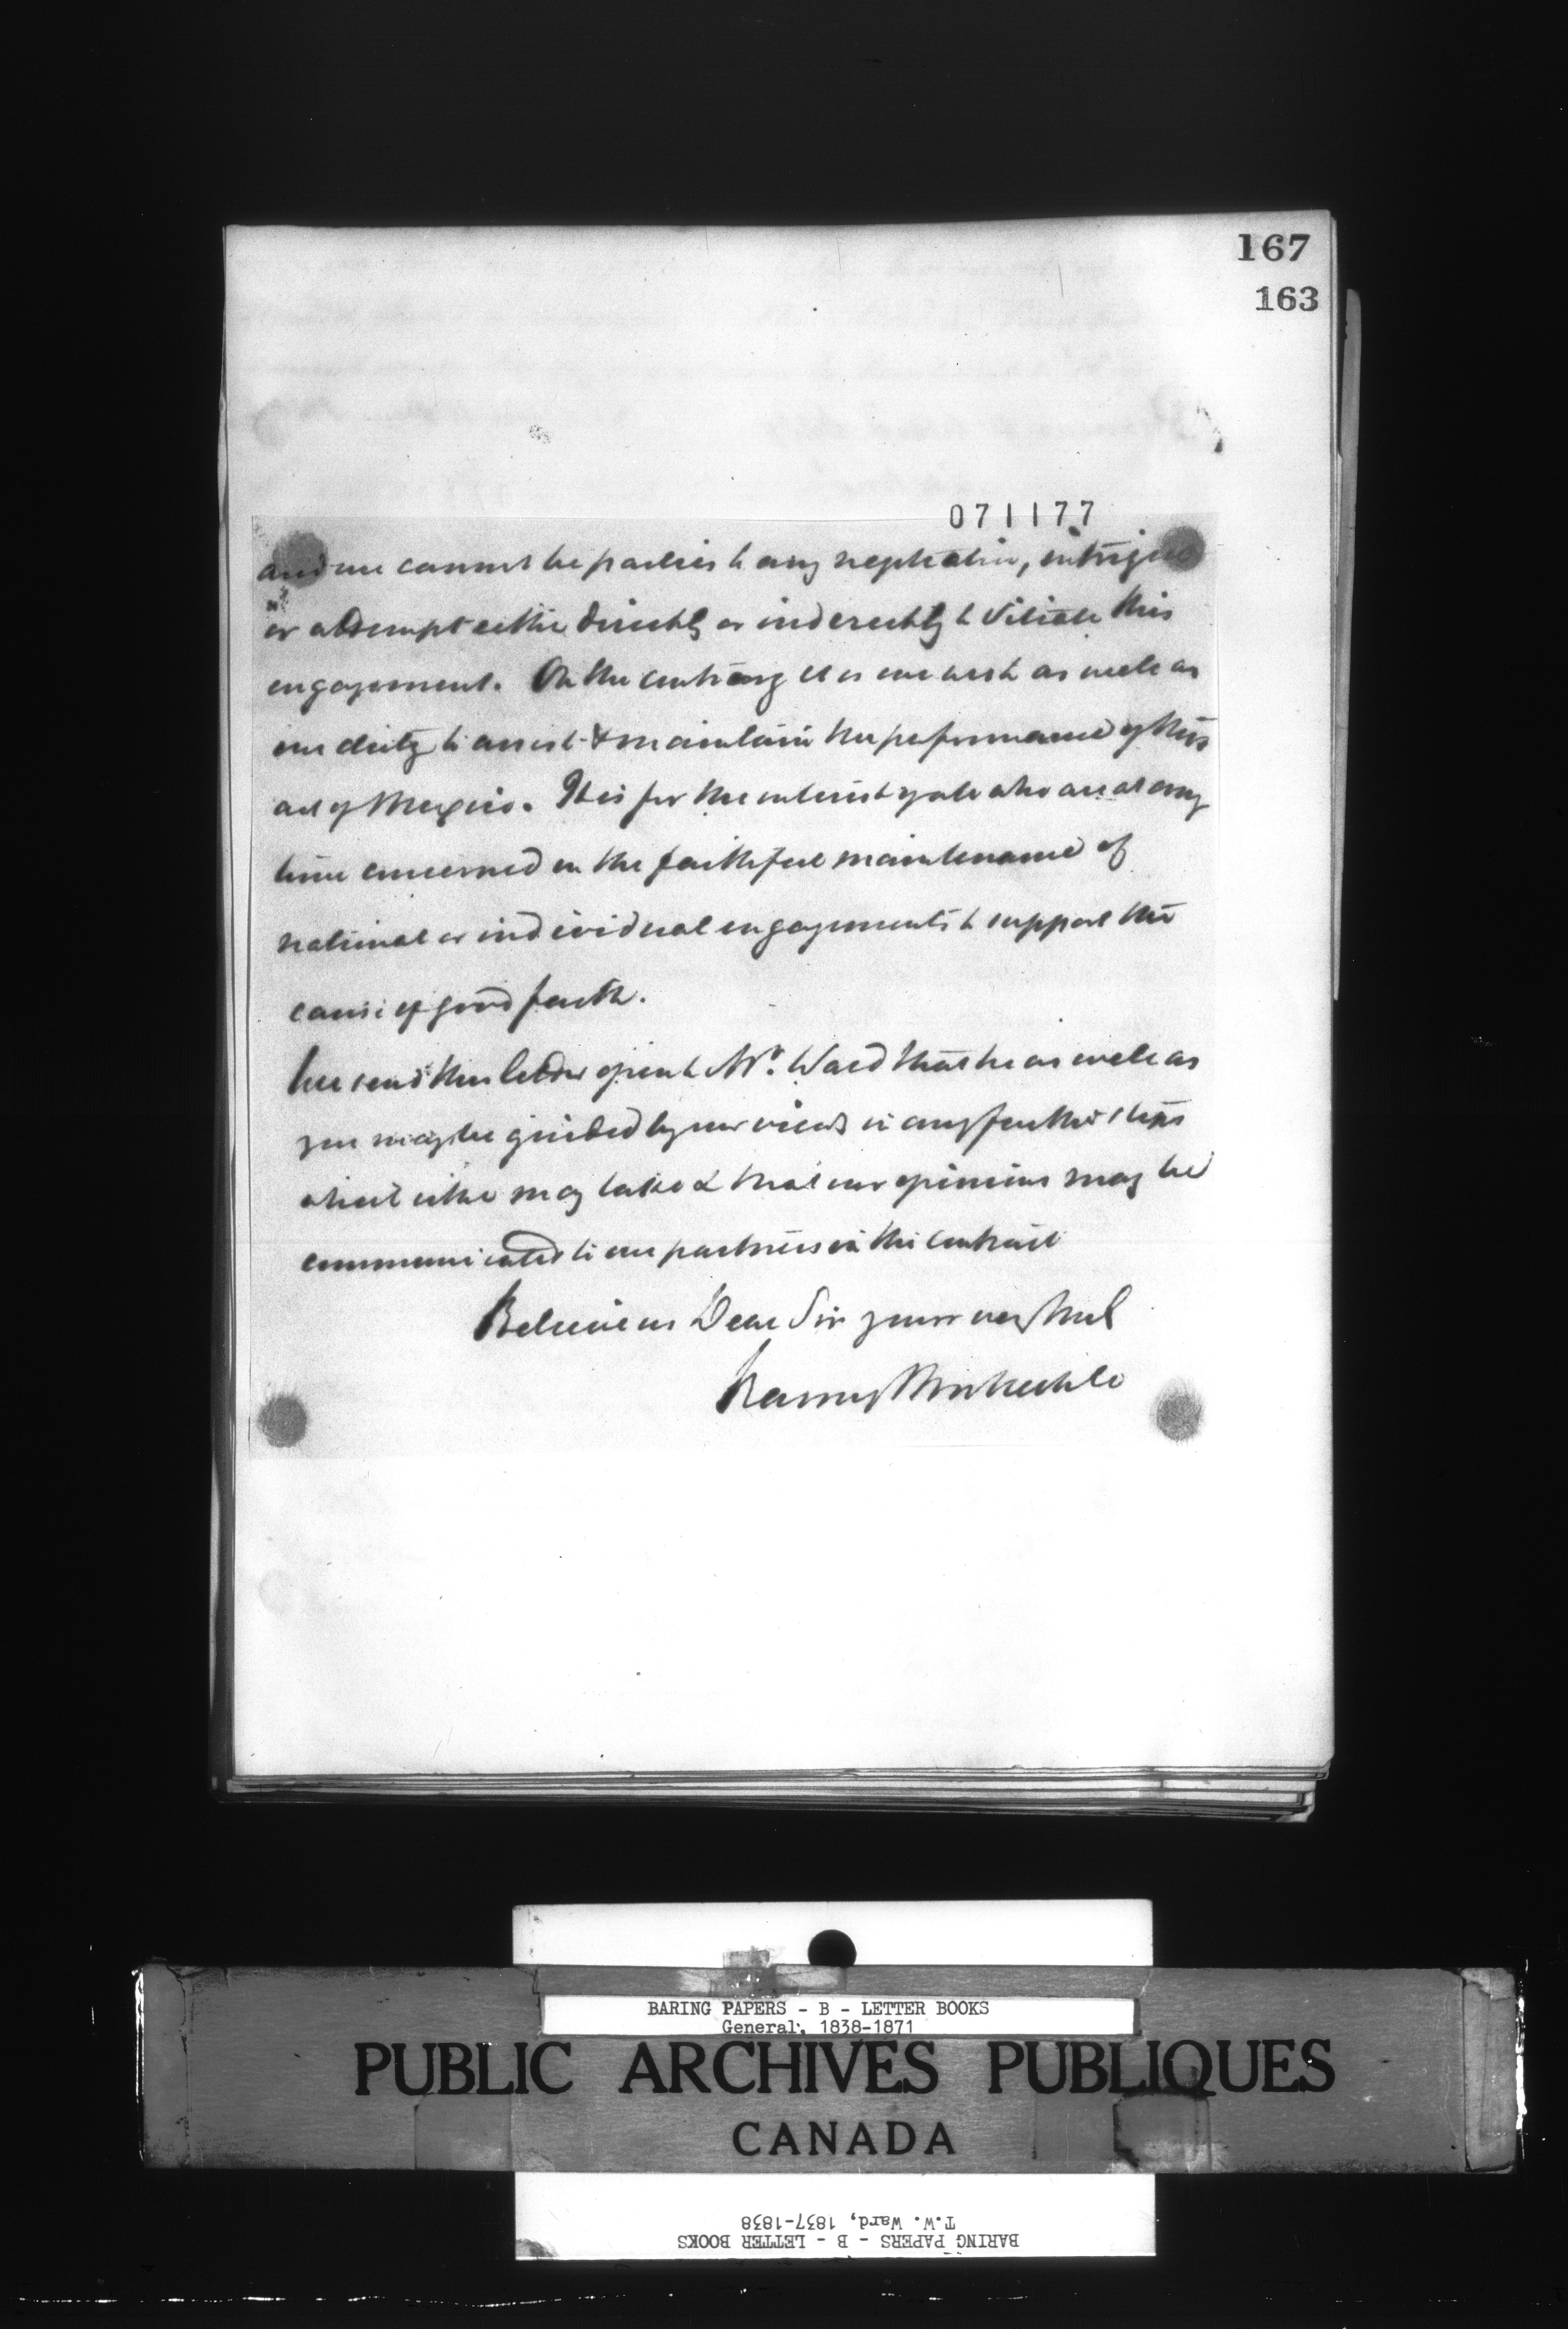 167
163
071177
and we cannot be parties to any negotiation, intrigue
or attempt either directly or inderectly to vitiate this
engagement. On the contrary it is our wish as well as
our duty to assist & maintain the performance of this
act of Mexico. It is for the interest of all who are at any
time concerned in the faithful maintenance of
national or individual engagements to support the
cause of good faith.
We send this letter open to Mr. Ward that he as well as
you may be guided by our views in any further steps
which either may take & that our opinions may be
communicated to our partners in the contract
Believe us Dear Sir yours very truly
Baring Brothers & Co
BARING PAPERS - B - LETTER BOOKS
General, 1838-1871
PUBLIC ARCHIVES PUBLIQUES
CANADA
BARING PAPERS - B - LETTER BOOKS
T.W. Ward, 1837-1838